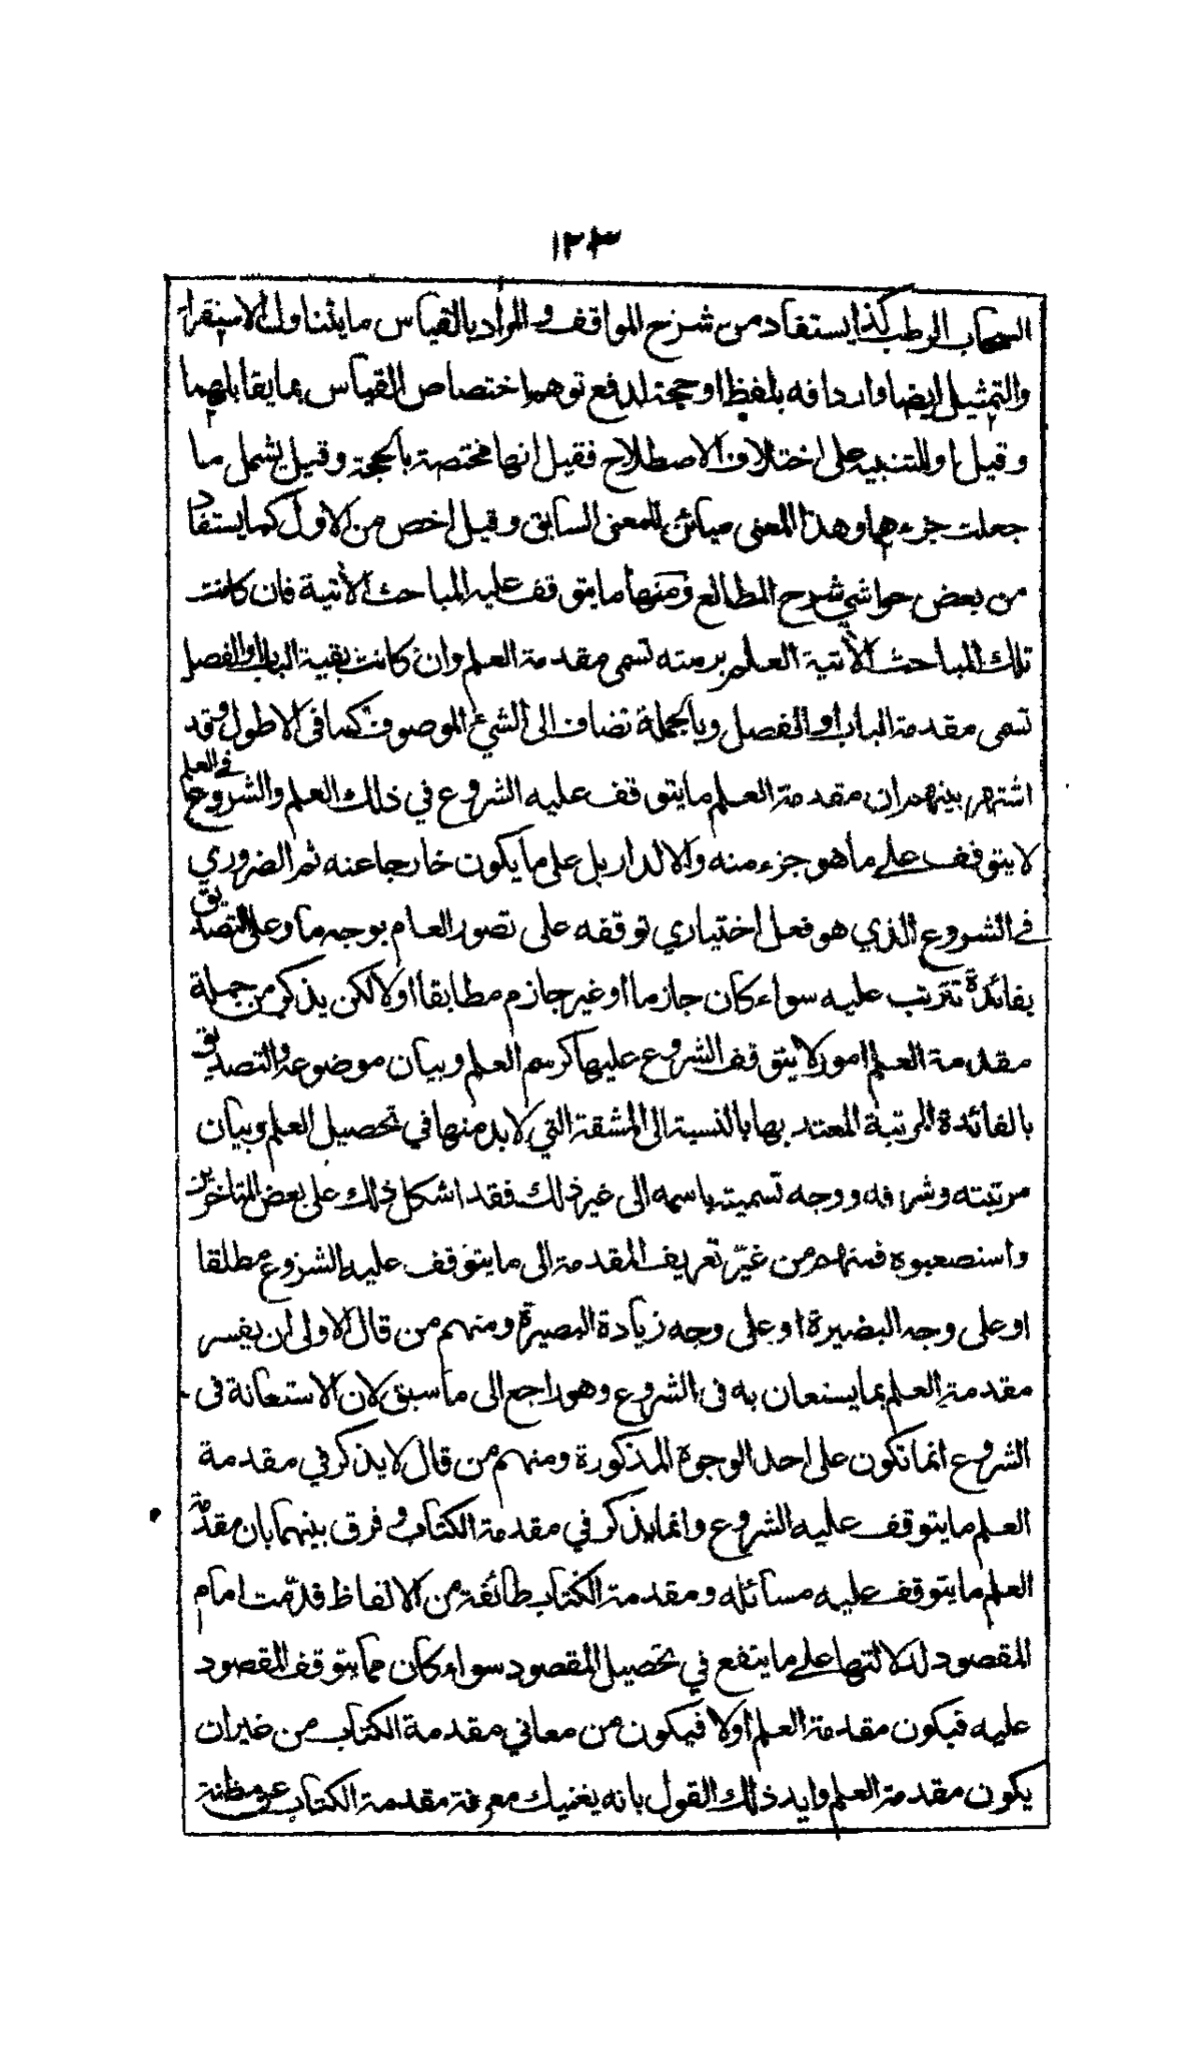 ١٢٣
السحاب الرطب كذا يستفاد من شرح المواقف والمراد بالقياس ما يتناول الاستقراء
والتمثيل ايضا واردافه بلفظ او حجة لدفع توهم اختصاص القياس بما يقابلهما
وقيل او للتنبيه على اختلاف الاصطلاح فقيل انها مختصة بالحجة وقيل يشمل ما
جعلت جزءها وهذا المعنى مبائن للمعنى السابق وقيل اخص من الاول كما يستفاد
من بعض حواشي شرح المطالع ومنها ما يتوقف عليه المباحث الآتية فان كانت
تلك المباحث الآتية العلم برمته تسمى مقدمة العلم وان كانت بقية الباب او الفصل
تسمى مقدمة الباب او الفصل وبالجملة تضاف الى الشيء الموصوف كما فى الاطول وقد
اشتهر بينهم ان مقدمة العلم ما يتوقف عليه الشروع في ذلك العلم والشروع في العلم
لا يتوقف على ما هو جزء منه والا لدار بل على ما يكون خارجا عنه ثم الضروري
في الشروع الذي هو فعل اختياري توقفه على تصور العلم بوجه ما وعلى التصديق
بفائدة تترتب عليه سواء كان جازما او غير جازم مطابقا اولا لكن يذكر من جملة
مقدمة العلم امور لا يتوقف الشروع عليها كرسم العلم وبيان موضوعه والتصديق
بالفائدة المرتبة المعتد بها بالنسبة الى المشقة التي لا بد منها في تحصيل العلم وبيان
مرتبته وشرفه ووجه تسميته باسمه الى غير ذلك فقد اشكل ذلك على بعض المتاخرين
واستصعبوه فمنهم من غيّر تعريف المقدمة الى ما يتوقف عليه الشروع مطلقا
او على وجه البصيرة او على وجه زيادة البصيرة ومنهم من قال الاولى ان يفسر
مقدمة العلم بما يستعان به فى الشروع وهو راجع الى ما سبق لان الاستعانة فى
الشروع انما تكون على احد الوجوه المذكورة ومنهم من قال لا يذكر في مقدمة
العلم ما يتوقف عليه الشروع وانما يذكر في مقدمة الكتاب وفرق بينهما بان مقدمة
العلم ما يتوقف عليه مسائله ومقدمة الكتاب طائفة من الالفاظ قدّمت امام
المقصود لدلالتها على ما ينفع في تحصيل المقصود سواء كان مما يتوقف المقصود
عليه فيكون مقدمة العلم اولا فيكون من معاني مقدمة الكتاب من غير ان
يكون مقدمة العلم وايد ذلك القول بانه يغنيك معرفة مقدمة الكتاب عن مظنة